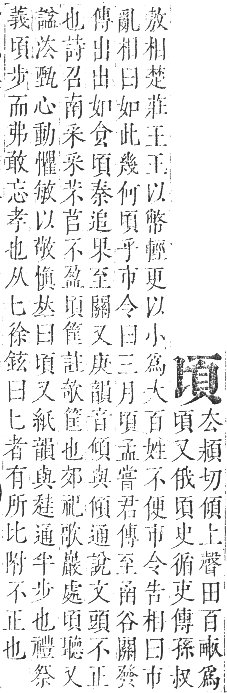 頃𠫤頴切傾上聲田百畝爲
頃又俄頃史循吏傳孫叔
敖相楚莊王王以幣輕更以小爲大百姓不便市令告相曰市
亂相曰如此幾何頃乎市令曰三月頃孟嘗君傳至函谷關發
傳出出如食頃秦追果至關又庚韻音傾與傾通說文頭不正
也詩召南采采芣苢不盈頃筐註欹筐也郊祀歌巖處頃聽又
諡法甄心動懼敏以敬愼𠀤曰頃又紙韻與跬通半步也禮祭
義頃步而弗敢忘孝也从匕徐鉉曰匕者有所比附不正也